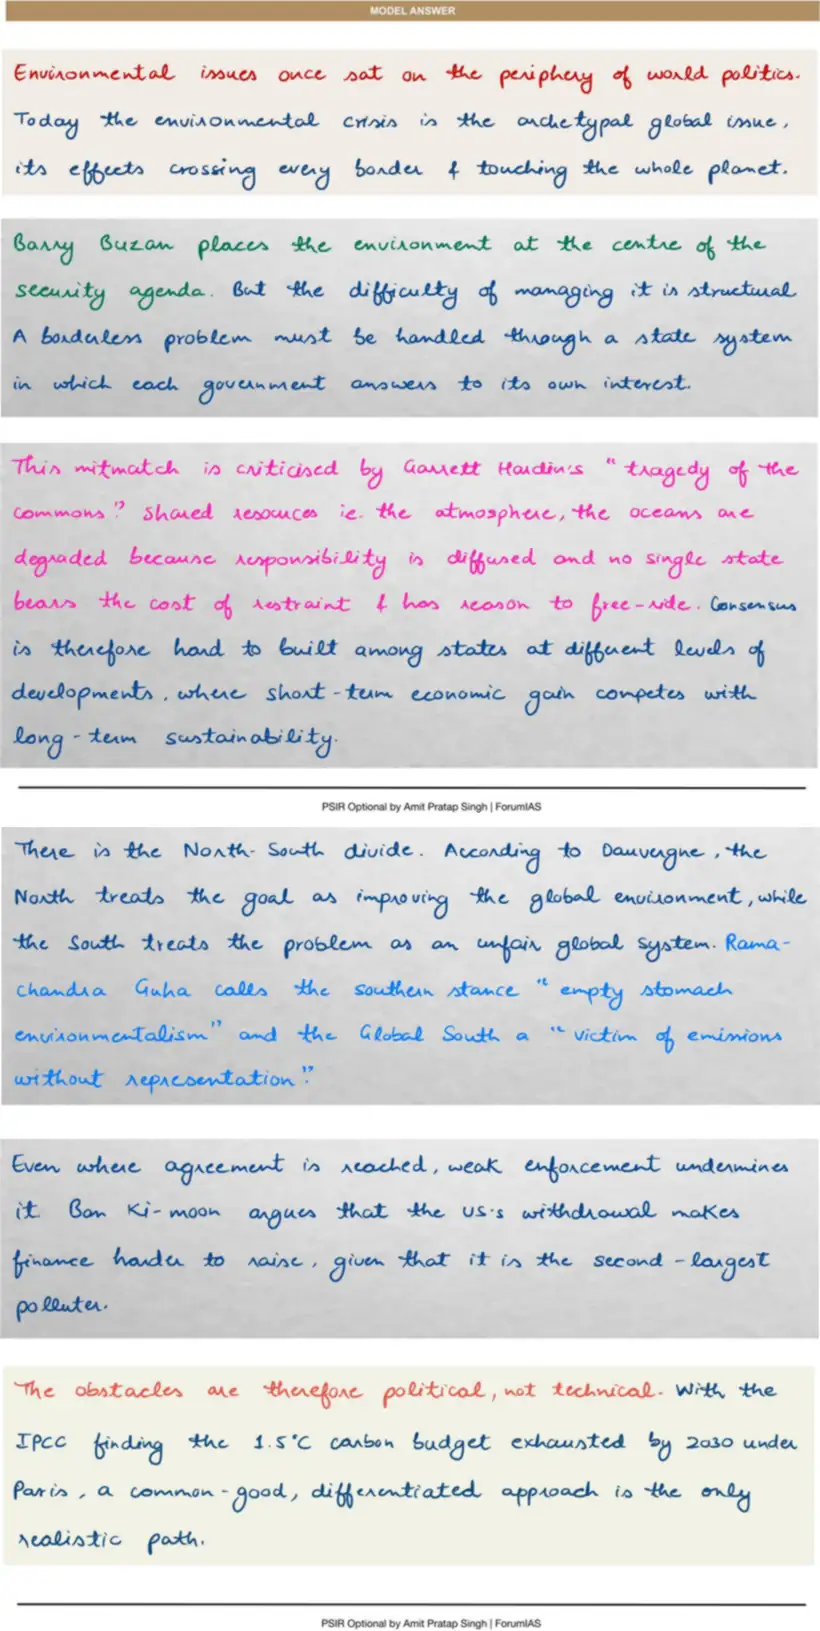 MODEL ANSWER
Environmental issues once sat on the periphery of world politics.
Today the environmental crisis is the archetypal global issue,
its effects crossing every border & touching the whole planet.
Barry Buzan places the environment at the centre of the
security agenda. But the difficulty of managing it is structural
A borderless problem must be handled through a state system
in which each government answers to its own interest.
This mitmatch is criticised by Garrett Hardin's "tragedy of the
commons". Shared resources ie. the atmosphere, the oceans are
degraded because responsibility is diffused and no single state
bears the cost of restraint & has reason to free-ride. Consensus
is therefore hard to built among states at different levels of
developments, where short-term economic gain competes with
long-term sustainability.
PSIR Optional by Amit Pratap Singh | ForumIAS
There is the North-South divide. According to Dauvergne, the
North treats the goal as improving the global environment, while
the South treats the problem as an unfair global system. Rama-
chandra Guha calls the southern stance "empty stomach
environmentalism" and the Global South a "victim of emissions
without representation".
Even where agreement is reached, weak enforcement undermines
it. Ban Ki-moon argues that the US's withdrawal makes
finance harder to raise, given that it is the second-largest
polluter.
The obstacles are therefore political, not technical. With the
IPCC finding the 1.5°C carbon budget exhausted by 2030 under
Paris, a common-good, differentiated approach is the only
realistic path.
PSIR Optional by Amit Pratap Singh | ForumIAS